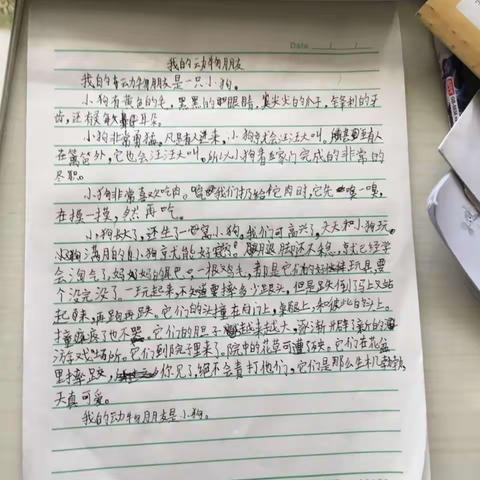 Date
我的动物朋友
我的动物朋友是一只小狗。
小狗有黄白的毛,黑黑的眼睛,尖尖的鼻子,锋利的牙
齿,还有耳朵。
小狗非常勇猛。凡是有人进来,小狗就会汪汪大叫。有人
在篱笆外,它也会汪汪大叫。所以小狗看家门完成的非常的
尽职。
小狗非常喜欢吃肉。我们扔给它肉时,它先嗅一嗅,
在摸一摸,然再吃。
小狗长大了,还生了一窝小狗。我们可高兴了,天天和小狗玩。
小狗满月的
会淘气了,一根鸡大,都是它们的玩具,要
个没完没了。一玩起来,不知道要摔多少跟头,但是跌倒了马上又站
起来,再跑再跌。它们的头撞在门上,桌腿上,和彼此的头上。
撞疼了也不哭。它们的胆子越来越大,逐渐开辟了新的
游戏场所。它们到院子里来了。院中的花草可遭了殃。它们在花盆
里摔跤,你见了,绝不会责打他们,它们是那么生机勃勃,
天真可爱。
我的动物朋友是小狗。